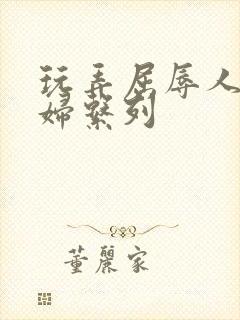 玩弄屈辱人
婦繫列
董麗家